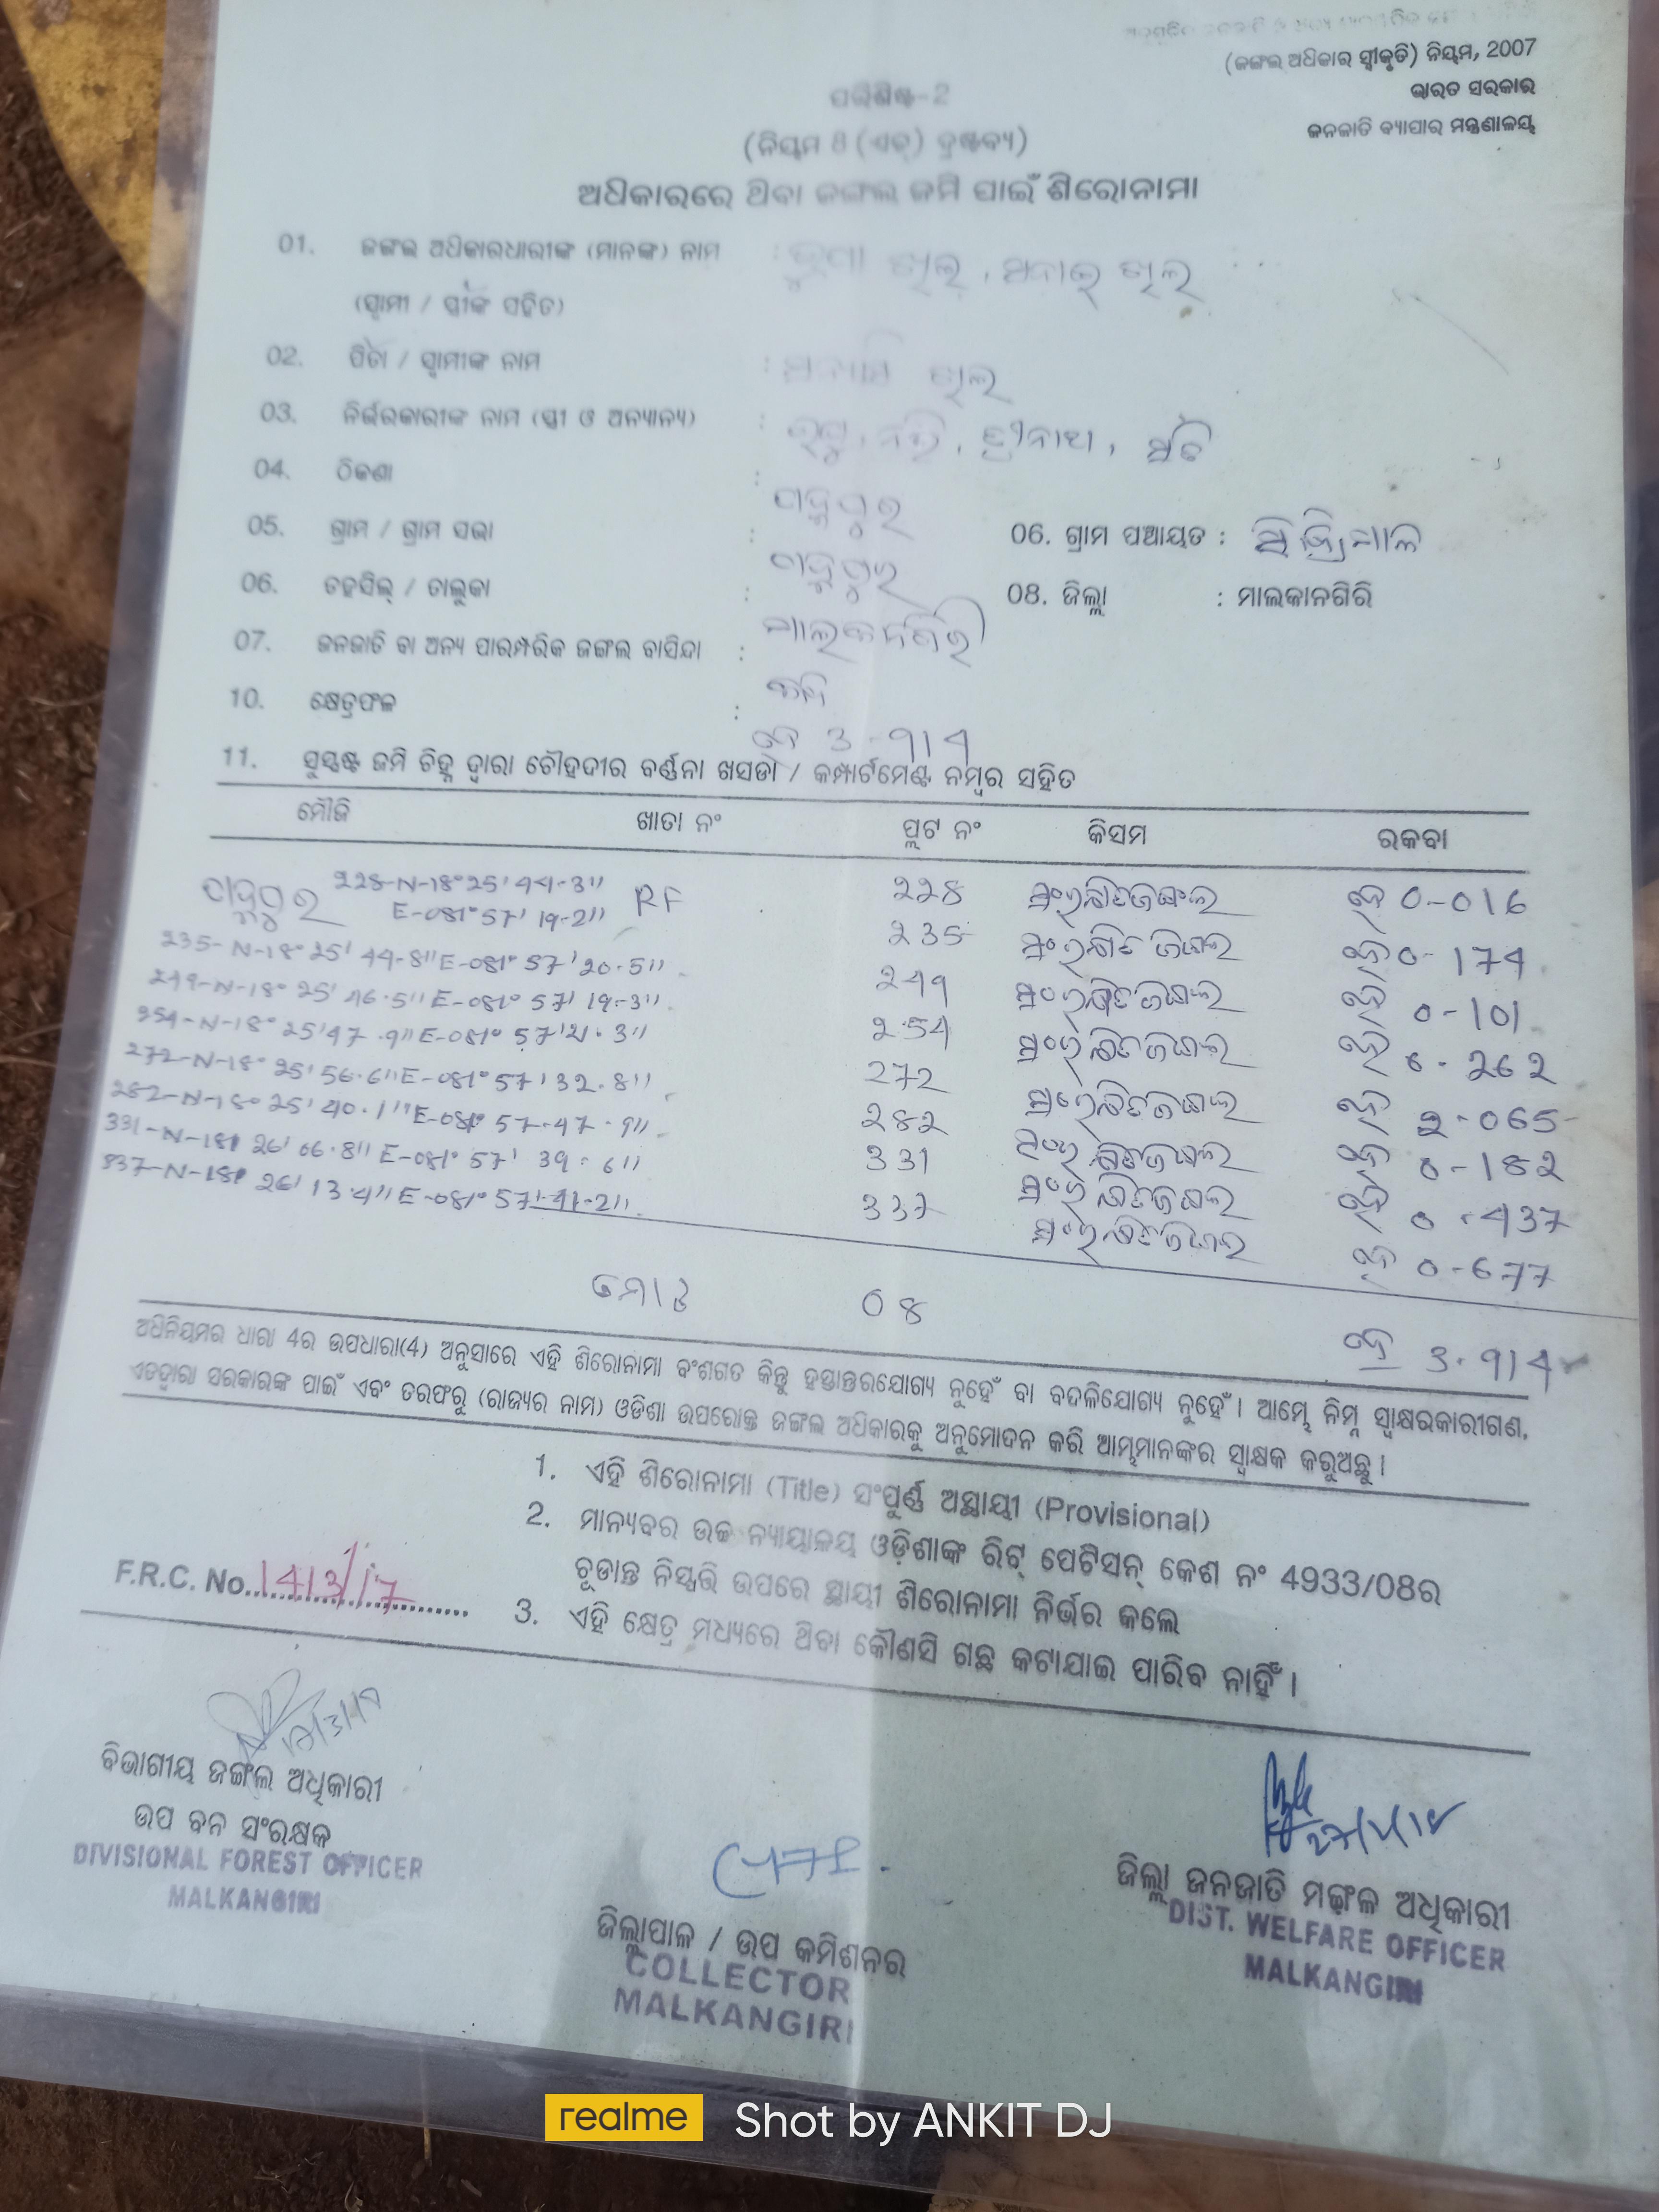 (ଜଙ୍ଗଲ ଅଧିକାର ସ୍ୱୀକୃତି) ନିୟମ, 2007
ଭାରତ ସରକାର
ଜନଜାତି ବ୍ୟାପାର ମନ୍ତ୍ରଣାଳୟ
ପରିଶିଷ୍ଟ-2
(ନିୟମ 8 (ଏଚ୍) ଦ୍ରଷ୍ଟବ୍ୟ)
ଅଧିକାରରେ ଥିବା ଜଙ୍ଗଲ ଜମି ପାଇଁ ଶିରୋନାମା
01. ଜଙ୍ଗଲ ଅଧିକାରଧାରୀଙ୍କ (ମାନଙ୍କ) ନାମ :
(ସ୍ୱାମୀ / ସ୍ତ୍ରୀଙ୍କ ସହିତ)
02. ପିତା / ସ୍ୱାମୀଙ୍କ ନାମ :
03. ନିର୍ଭରକାରୀଙ୍କ ନାମ (ସ୍ତ୍ରୀ ଓ ଅନ୍ୟାନ୍ୟ) :
04. ଠିକଣା :
05. ଗ୍ରାମ / ଗ୍ରାମ ସଭା : 06. ଗ୍ରାମ ପଞ୍ଚାୟତ :
06. ତହସିଲ୍ / ତାଲୁକା : ମାଲକାନଗିରୀ 08. ଜିଲ୍ଲା : ମାଲକାନଗିରି
07. ଜନଜାତି ବା ଅନ୍ୟ ପାରମ୍ପରିକ ଜଙ୍ଗଲ ବାସିନ୍ଦା :
10. କ୍ଷେତ୍ରଫଳ : ହେ 3-914
11. ସୁସ୍ପଷ୍ଟ ଜମି ଚିହ୍ନ ଦ୍ୱାରା ଚୌହଦୀର ବର୍ଣ୍ଣନା ଖସଡା / କମ୍ପାର୍ଟମେଣ୍ଟ ନମ୍ବର ସହିତ
ମୌଜି ଖାତା ନଂ ପ୍ଲଟ ନଂ କିସମ ରକବା
228-N-18°25'44-3" E-081°57'19-2" RF 228 ସଂରକ୍ଷିତ ଜଙ୍ଗଲ ହେ 0-016
235-N-18°25'44-8" E-081°57'20.5" 235 ସଂରକ୍ଷିତ ଜଙ୍ଗଲ ହେ 0-174
249-N-18°25'46.5" E-081°57'19-3" 249 ସଂରକ୍ଷିତ ଜଙ୍ଗଲ ହେ 0-101
254-N-18°25'47.9" E-081°57'21.3" 254 ସଂରକ୍ଷିତ ଜଙ୍ଗଲ ହେ 0-262
272-N-18°25'56.6" E-081°57'32.8" 272 ସଂରକ୍ଷିତ ଜଙ୍ଗଲ ହେ 2-065
282-N-18°25'40.1" E-081°57-47.9" 282 ସଂରକ୍ଷିତ ଜଙ୍ଗଲ ହେ 0-182
331-N-18° 26'06.8" E-081°57'39-6" 331 ସଂରକ୍ଷିତ ଜଙ୍ଗଲ ହେ 0-437
337-N-18° 26'13.4" E-081°57'-41-2" 337 ସଂରକ୍ଷିତ ଜଙ୍ଗଲ ହେ 0-677
ମୋଟ 08 ହେ 3.914
ଅଧିନିୟମର ଧାରା 4ର ଉପଧାରା(4) ଅନୁସାରେ ଏହି ଶିରୋନାମା ବଂଶଗତ କିନ୍ତୁ ହସ୍ତାନ୍ତରଯୋଗ୍ୟ ନୁହେଁ ବା ବଦଳିଯୋଗ୍ୟ ନୁହେଁ । ଆମ୍ଭେ ନିମ୍ନ ସ୍ୱାକ୍ଷରକାରୀଗଣ,
ଏତଦ୍ୱାରା ସରକାରଙ୍କ ପାଇଁ ଏବଂ ତରଫରୁ (ରାଜ୍ୟର ନାମ) ଓଡିଶା ଉପରୋକ୍ତ ଜଙ୍ଗଲ ଅଧିକାରକୁ ଅନୁମୋଦନ କରି ଆମ୍ଭମାନଙ୍କର ସ୍ୱାକ୍ଷକ କରୁଅଛୁ ।
1. ଏହି ଶିରୋନାମା (Title) ସଂପୂର୍ଣ୍ଣ ଅସ୍ଥାୟୀ (Provisional)
2. ମାନ୍ୟବର ଉଚ୍ଚ ନ୍ୟାୟାଳୟ ଓଡ଼ିଶାଙ୍କ ରିଟ୍ ପେଟିସନ୍ କେଶ ନଂ 4933/08ର
ଚୂଡାନ୍ତ ନିସ୍ପତ୍ତି ଉପରେ ସ୍ଥାୟୀ ଶିରୋନାମା ନିର୍ଭର କଲେ
F.R.C. No. 1413/17
3. ଏହି କ୍ଷେତ୍ର ମଧ୍ୟରେ ଥିବା କୌଣସି ଗଛ କଟାଯାଇ ପାରିବ ନାହିଁ ।
ବିଭାଗୀୟ ଜଙ୍ଗଲ ଅଧିକାରୀ
ଉପ ବନ ସଂରକ୍ଷକ
DIVISIONAL FOREST OFFICER
MALKANGIRI
ଜିଲ୍ଲାପାଳ / ଉପ କମିଶନର
COLLECTOR
MALKANGIRI
ଜିଲ୍ଲା ଜନଜାତି ମଙ୍ଗଳ ଅଧିକାରୀ
DIST. WELFARE OFFICER
MALKANGIRI
realme Shot by ANKIT DJ